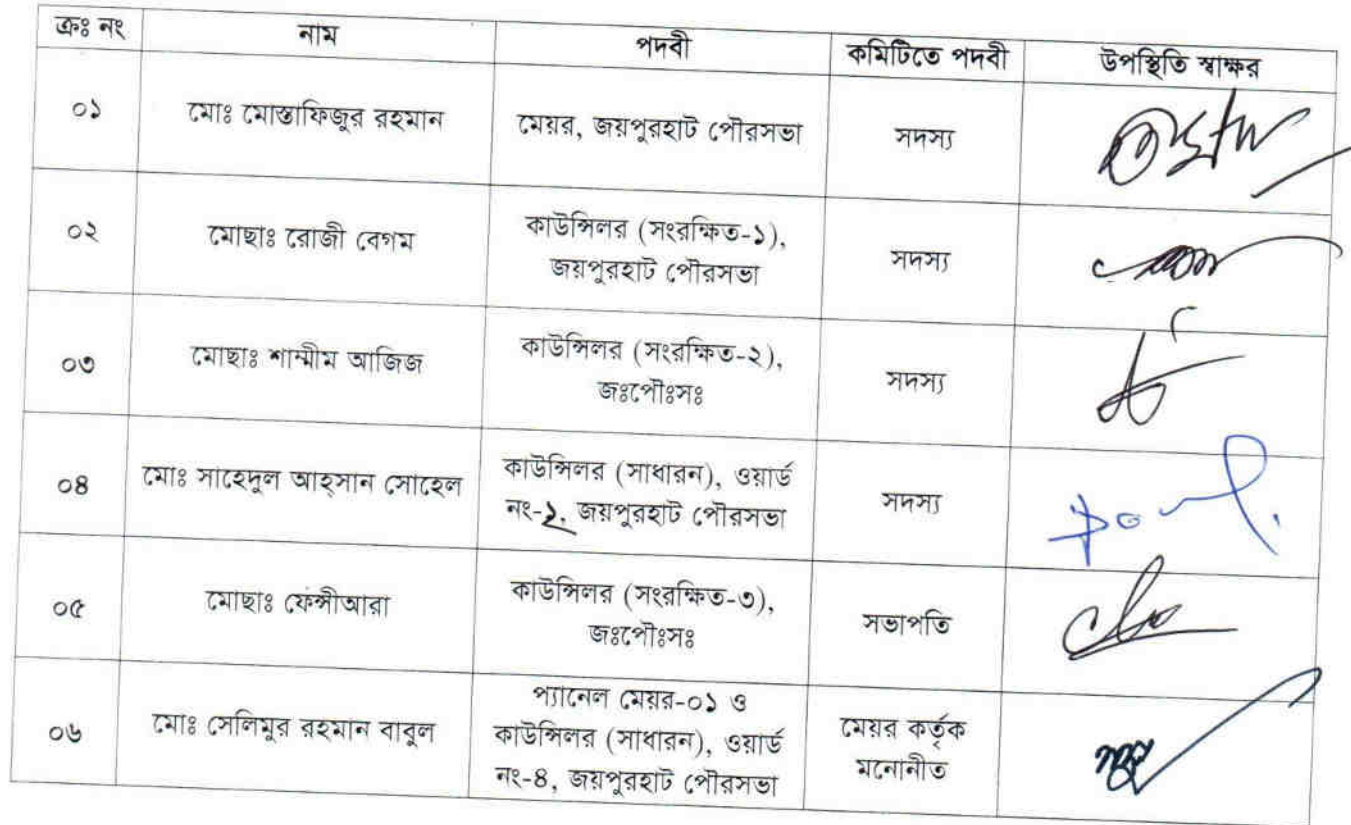 ক্রঃ নং নাম পদবী কমিটিতে পদবী উপস্থিতি স্বাক্ষর
০১ মোঃ মোস্তাফিজুর রহমান মেয়র, জয়পুরহাট পৌরসভা সদস্য
০২ মোছাঃ রোজী বেগম কাউন্সিলর (সংরক্ষিত-১),
জয়পুরহাট পৌরসভা সদস্য
০৩ মোছাঃ শাম্মীম আজিজ কাউন্সিলর (সংরক্ষিত-২),
জঃপৌঃসঃ সদস্য
০৪ মোঃ সাহেদুল আহ্সান সোহেল কাউন্সিলর (সাধারন), ওয়ার্ড
নং-২, জয়পুরহাট পৌরসভা সদস্য
০৫ মোছাঃ ফেন্সীআরা কাউন্সিলর (সংরক্ষিত-৩),
জঃপৌঃসঃ সভাপতি
০৬ মোঃ সেলিমুর রহমান বাবুল প্যানেল মেয়র-০১ ও
কাউন্সিলর (সাধারন), ওয়ার্ড
নং-৪, জয়পুরহাট পৌরসভা মেয়র কর্তৃক
মনোনীত